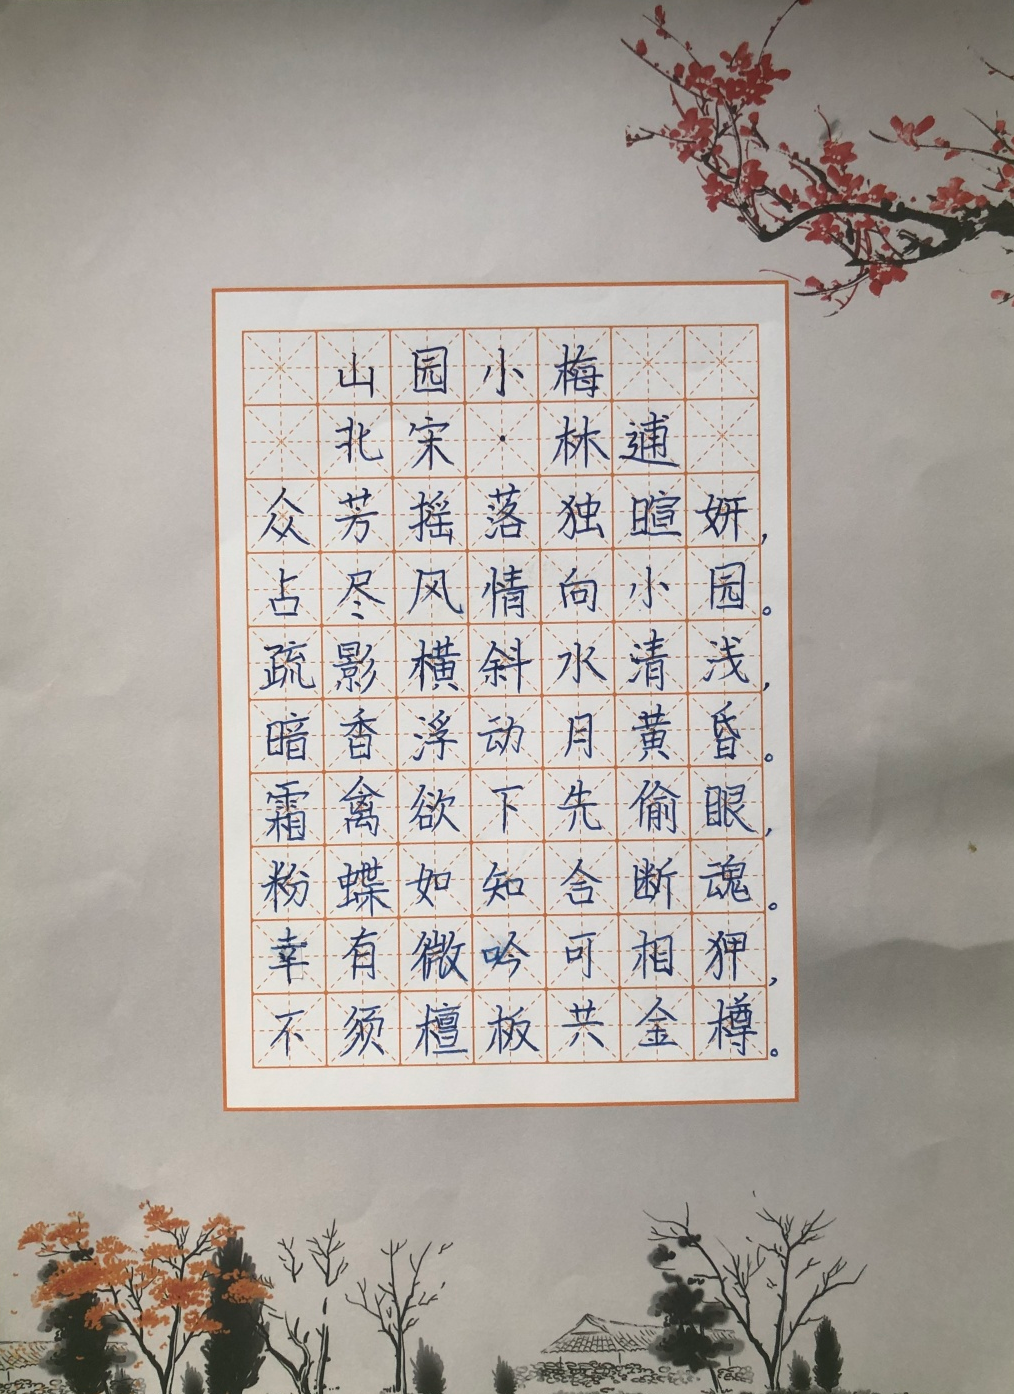 山园小梅
北宋·林逋
众芳摇落独暄妍,
占尽风情向小园。
疏影横斜水清浅,
暗香浮动月黄昏。
霜禽欲下先偷眼,
粉蝶如知合断魂。
幸有微吟可相狎,
不须檀板共金樽。